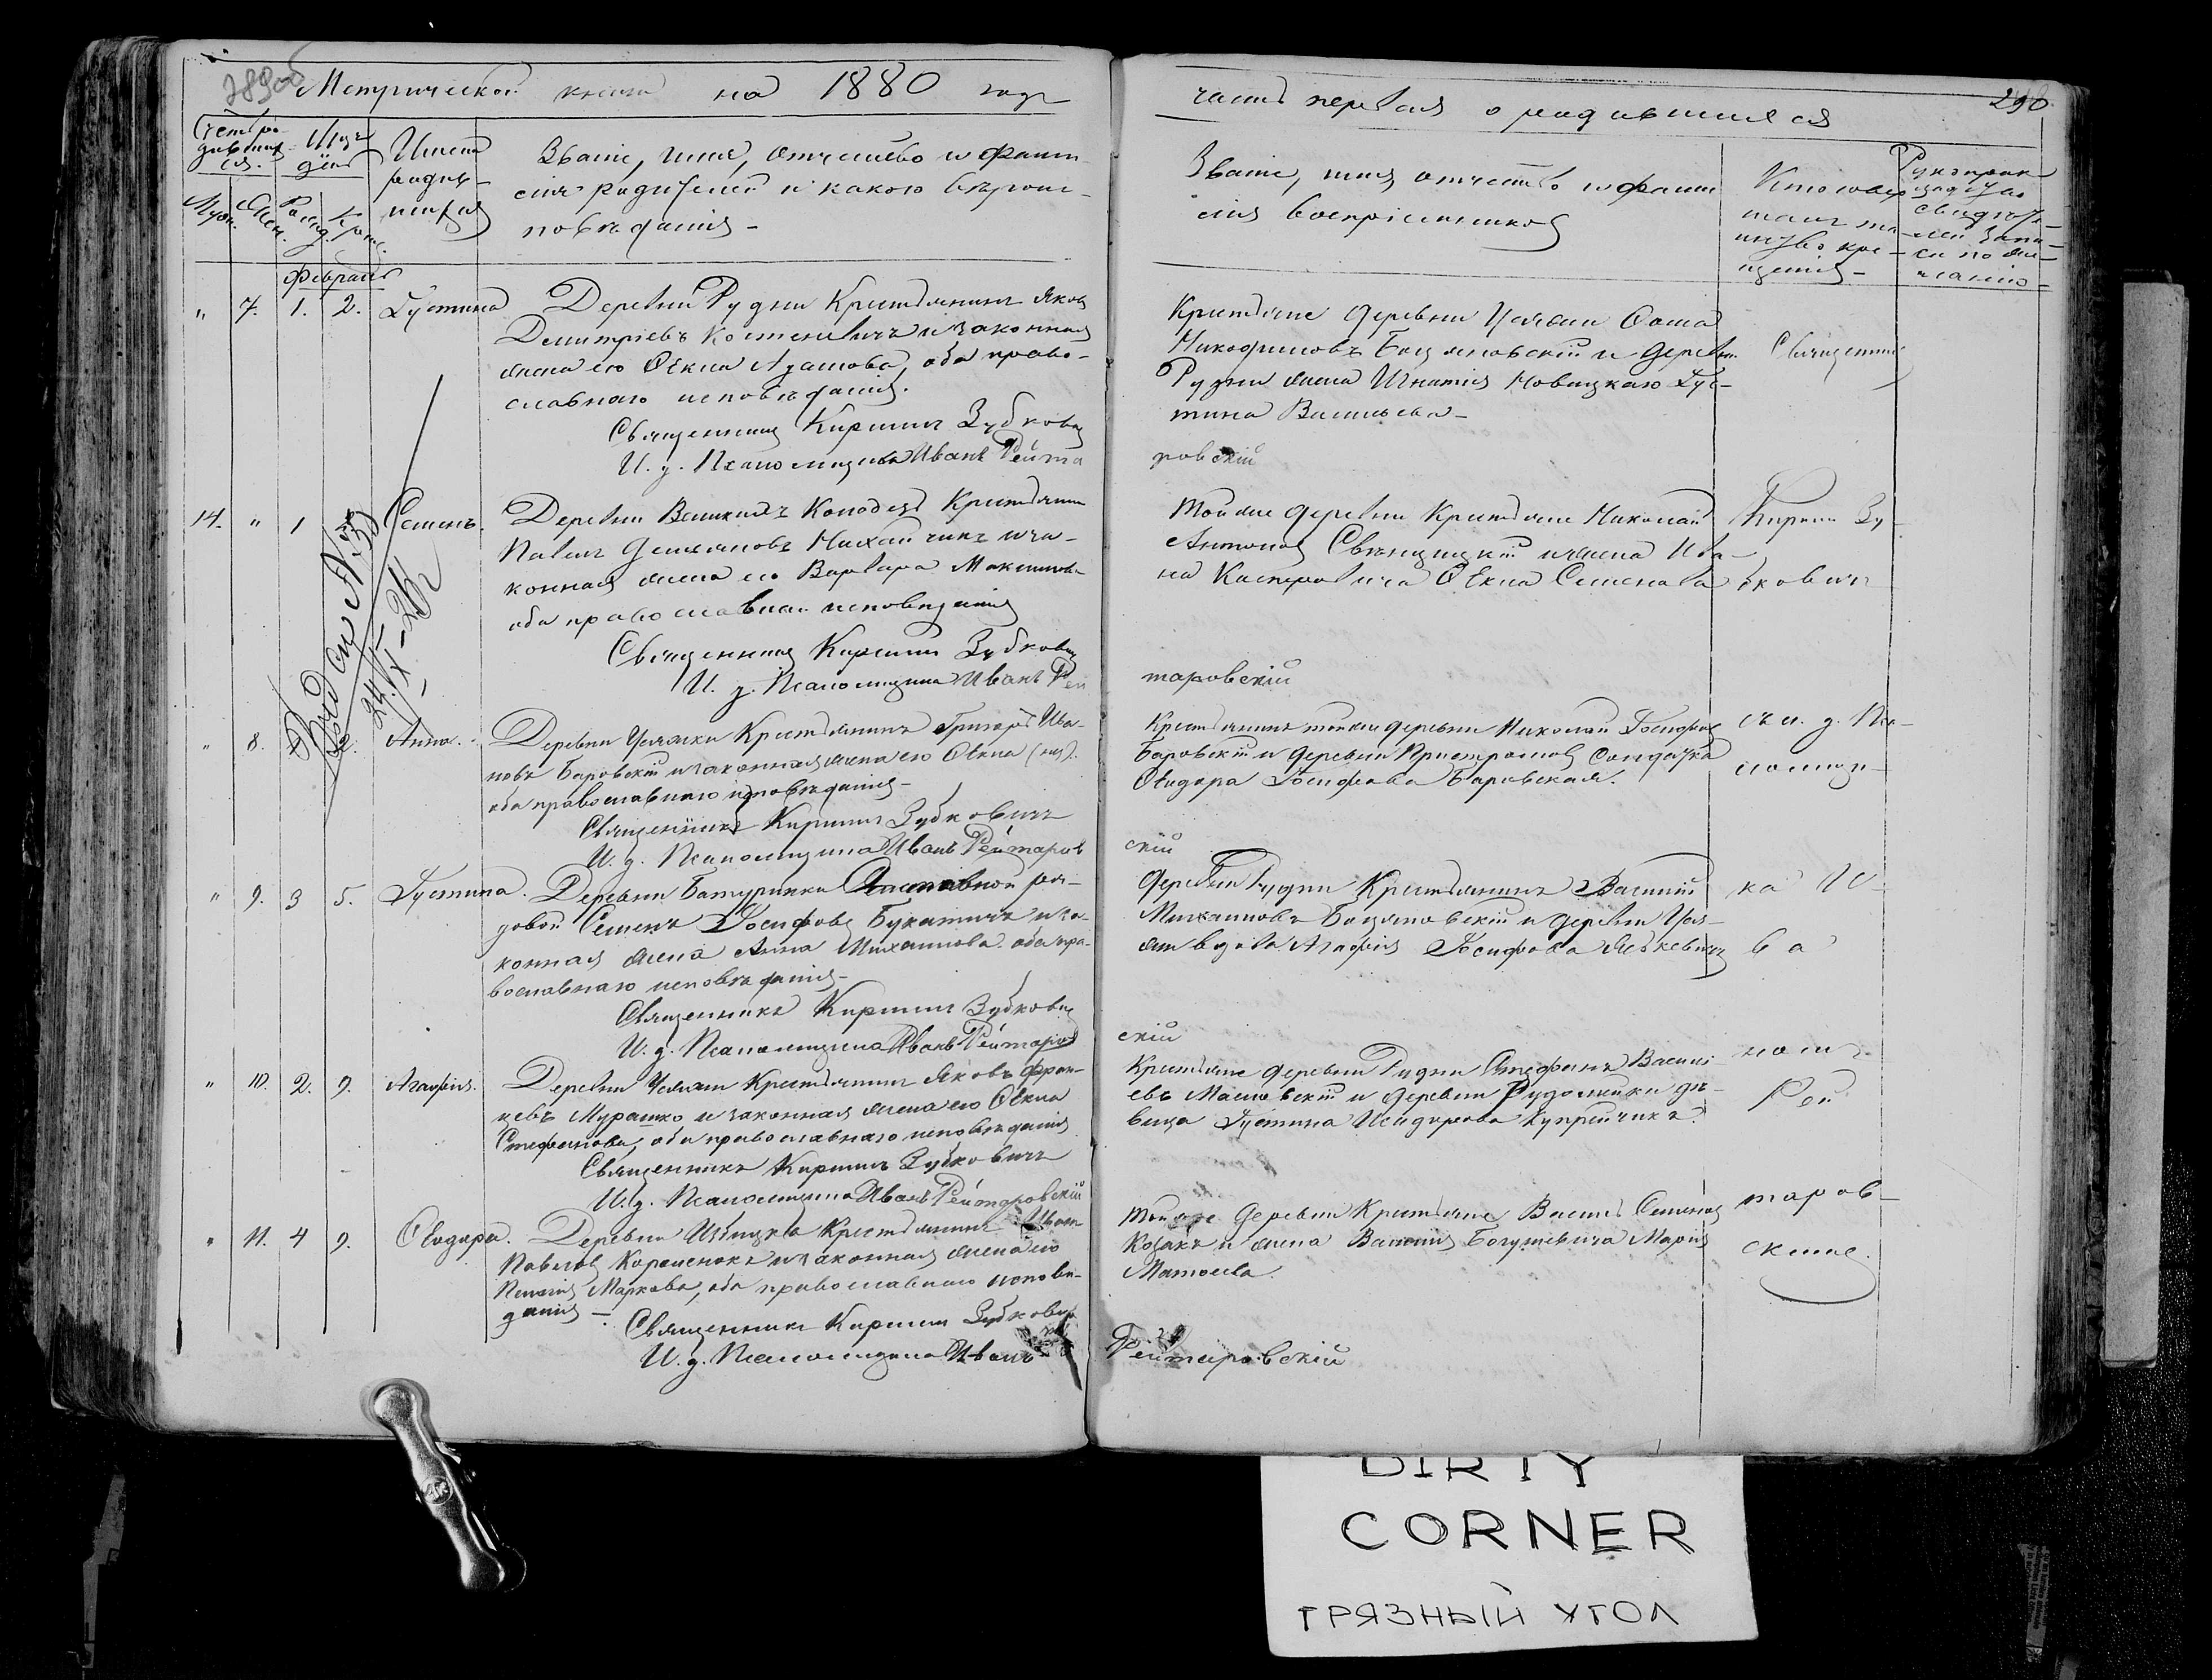 289об
Метрической книги на 1880 годъ
Счетъ ро-
дивших-
ся.
Муж. Жен.
день
Рожд. Крещ.
Имена
родив-
шихся
Званіе, имя, отчество и фами-
лія родителей и какого вѣроис-
повѣданія -
Февраль
" 7. 1. 2. Іустина
Деревни Рудни Крестьянинъ Яковъ
Димитріевъ Костеневичъ и законная
жена его Ѳекла Адамова, оба право-
славнаго исповѣданія.
Священникъ Кириллъ Зубковичъ
И. д. Псаломщика Иванъ Рейта
14. " 1 Семенъ.
Деревни Великихъ Колодезь Крестьянинъ
Павелъ Михайчикъ и за-
конная жена его Варвара Максимова
оба православнаго исповѣданія
Священникъ Кириллъ Зубковичъ
И. д. Псаломщика Иванъ Рей
24/IX-26
" 8. Анна.
Деревни Крестьянинъ Григорій Ива-
новъ Боровскій и законная жена его Ѳекла
оба православнаго исповѣданія -
Священникъ Кириллъ Зубковичъ
И. д. Псаломщика Иванъ Рейтаров
" 9. 3 5. Іустина.
Деревни Батуринки Отставной ря-
довой Семенъ Іосифовъ Букатичъ и за-
конная жена Анна Михайлова оба пра-
вославнаго исповѣданія -
Священникъ Кириллъ Зубковичъ
И. д. Псаломщика Иванъ Рейтаров
" 10. 2. 9. Агафія.
Деревни Крестьянинъ Яковъ Фран-
цевъ Мурашко и законная жена его Ѳекла
Стефанова, оба православнаго исповѣданія
Священникъ Кириллъ Зубковичъ
И. д. Псаломщика Иванъ Рейтаровскій
" 11. 4 9. Ѳеодора.
Деревни Крестьянинъ Иванъ
Павловъ и законная жена его
Маркова, оба православнаго исповѣ-
данія -
Священникъ Кириллъ Зубковичъ
И. д. Псаломщика Иванъ
часть первая о родившихся
290
Званіе, имя, отчество и фами
лія воспріемниковъ
Кто совер
шалъ та-
инство кре-
щенія -
Рукопри-
свидѣте-
лей запи-
си по же-
ланію -
Крестьяне деревни Ѳома
Никодимовъ Боцяновскій и деревни
Рудни жена Игнатія Новицкаго Іус-
тина Васильева -
ровскій
Той же деревни Крестьяне Николай
Антоновъ и жена Ива-
на Касперовича Ѳекла Семенова
таровскій
Крестьянинъ той же деревни Николай Іосифовъ
Боровскій и деревни солдатка
Ѳеодора Іосифова Боровская.
скій
Деревни Рудни Крестьянинъ Василій
Михайловъ Боцяновскій и деревни
вдова Агафія Іосифова
скій
Крестьяне деревни Рудни Стефанъ Василь-
евъ и деревни дѣ-
вица Іустина Исидорова Купрейчикъ.
Той же деревни Крестьяне Василь Семеновъ
Козакъ и жена Василія Богушевича Марія
Матвеева.
Рейтаровскій
Священникъ
Кириллъ Зу-
бковичъ
съ и. д. Пса-
ломщи-
ка И-
ва
номъ
Рей
таров-
скимъ.
DIRTY
CORNER
ГРЯЗНЫЙ УГОЛ